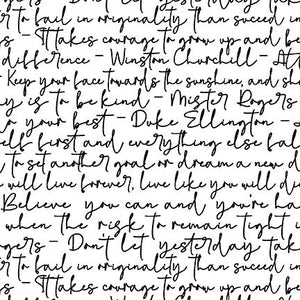 to fail in originality than succeed in
– It takes courage to grow up and be
difference – Winston Churchill – Att
Keep your face towards the sunshine, and sha
is to be kind – Mister Rogers
your best – Duke Ellington –
elf first and everything else fal
to set another goal or dream a new d
will live forever, live like you will di
Believe you can and you're ha
when the risk to remain tight i
gers – Don't let yesterday tak
to fail in originality than succeed in
s – It takes courage to grow up and be